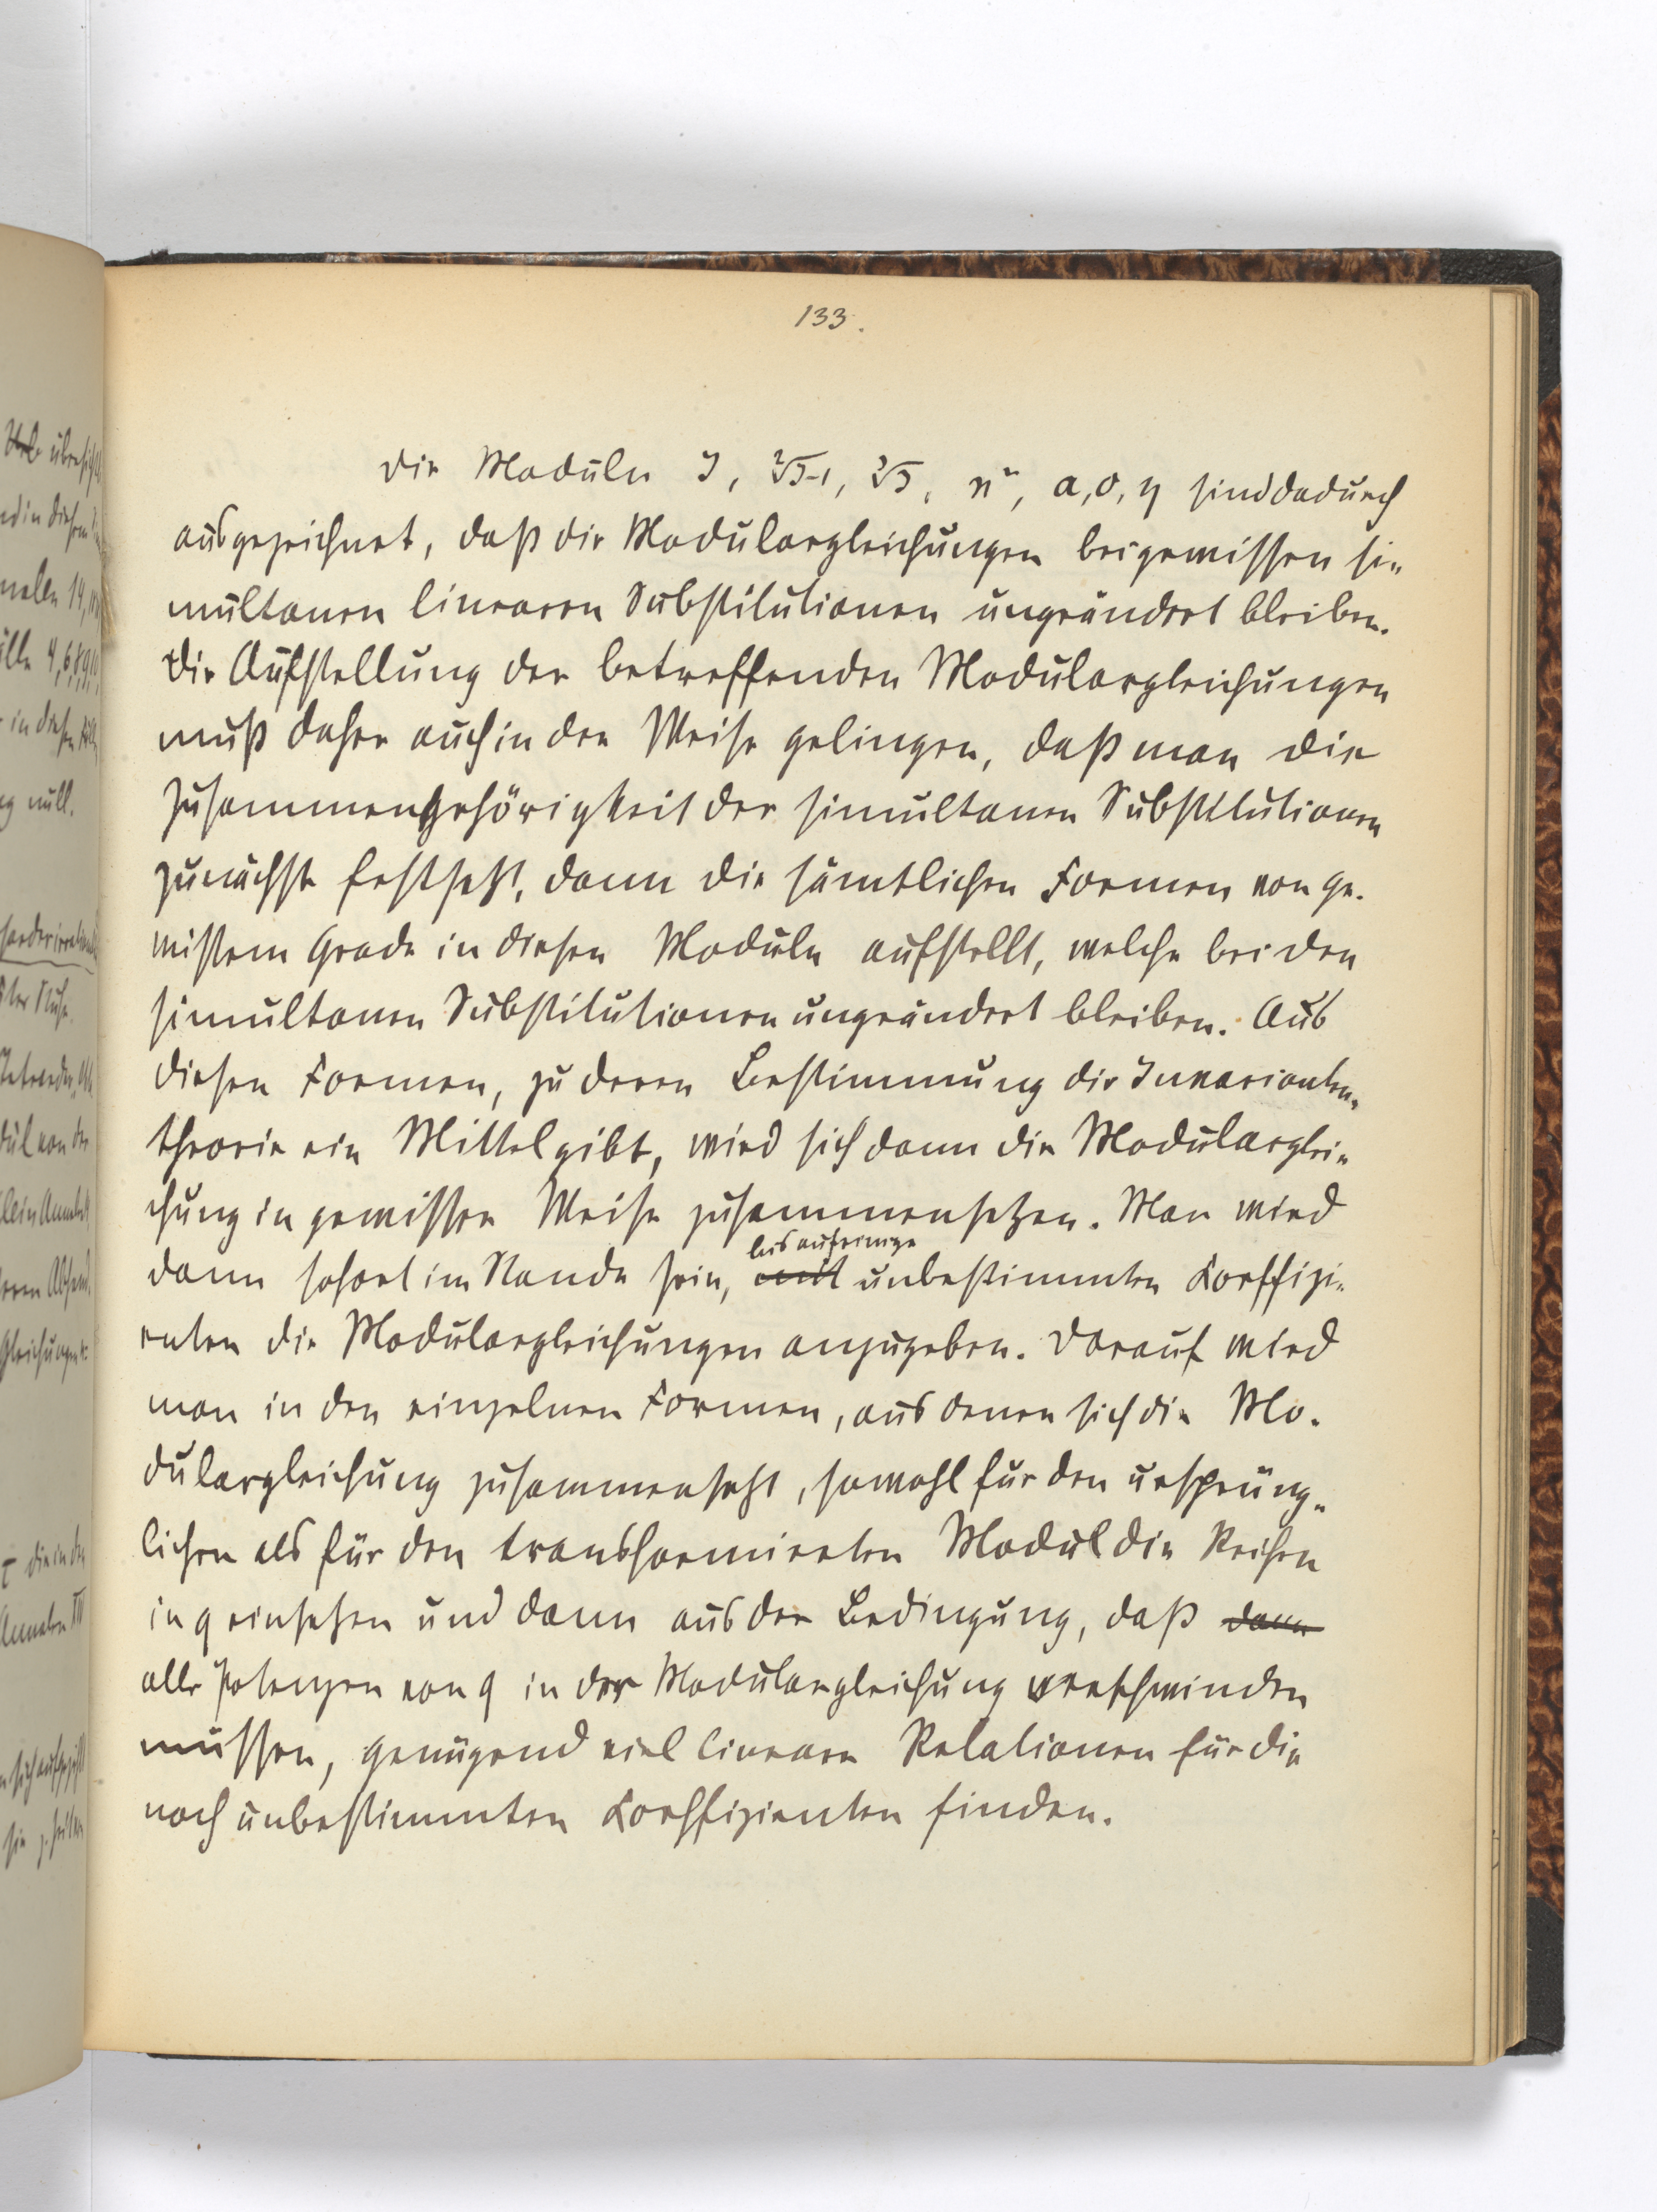 133.
Die Moduln J, ²√J-1, ³√J, a, o, η sind dadurch
ausgezeichnet, daß die Modulargleichungen bei gewissen si-
multanen linearen Substitutionen ungeändert bleiben.
Die Aufstellung der betreffenden Modulargleichungen
muß daher auch in der Weise gelingen, daß man die
Zusammengehörigkeit der simultanen Substitutionen
zunächst festsetzt, dann die sämtlichen Formen von ge-
wissem Grade in diesen Moduln aufstellt, welche bei den
simultanen Substitutionen ungeändert bleiben. Aus
diesen Formen, zu deren Bestimmung die Invarianten-
theorie ein Mittel gibt, wird sich dann die Modularglei-
chung in gewisser Weise zusammensetzen. Man wird
bis auf einige
dann sofort im Stande sein, mit unbestimmten Coeffizi-
enten die Modulargleichungen anzugeben. Darauf wird
man in den einzelnen Formen, aus denen sich die Mo-
dulargleichung zusammensetzt, sowohl für den ursprüng-
lichen als für den transformierten Modul die Reihen
in q einsetzen und dann aus der Bedingung, daß dann
alle Potenzen von q in der Modulargleichung verschwinden
müssen, genügend viel lineare Relationen für die
noch unbestimmten Coeffizienten finden.